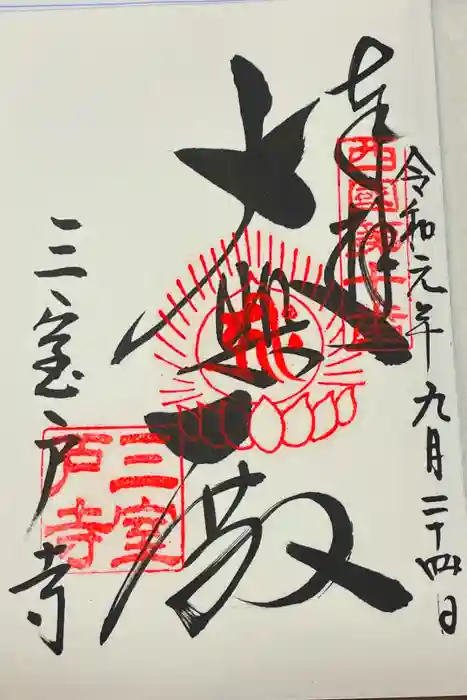 奉拝
令和元年九月二十四日
西國第十番
大悲殿
三室戸寺
三室戸寺